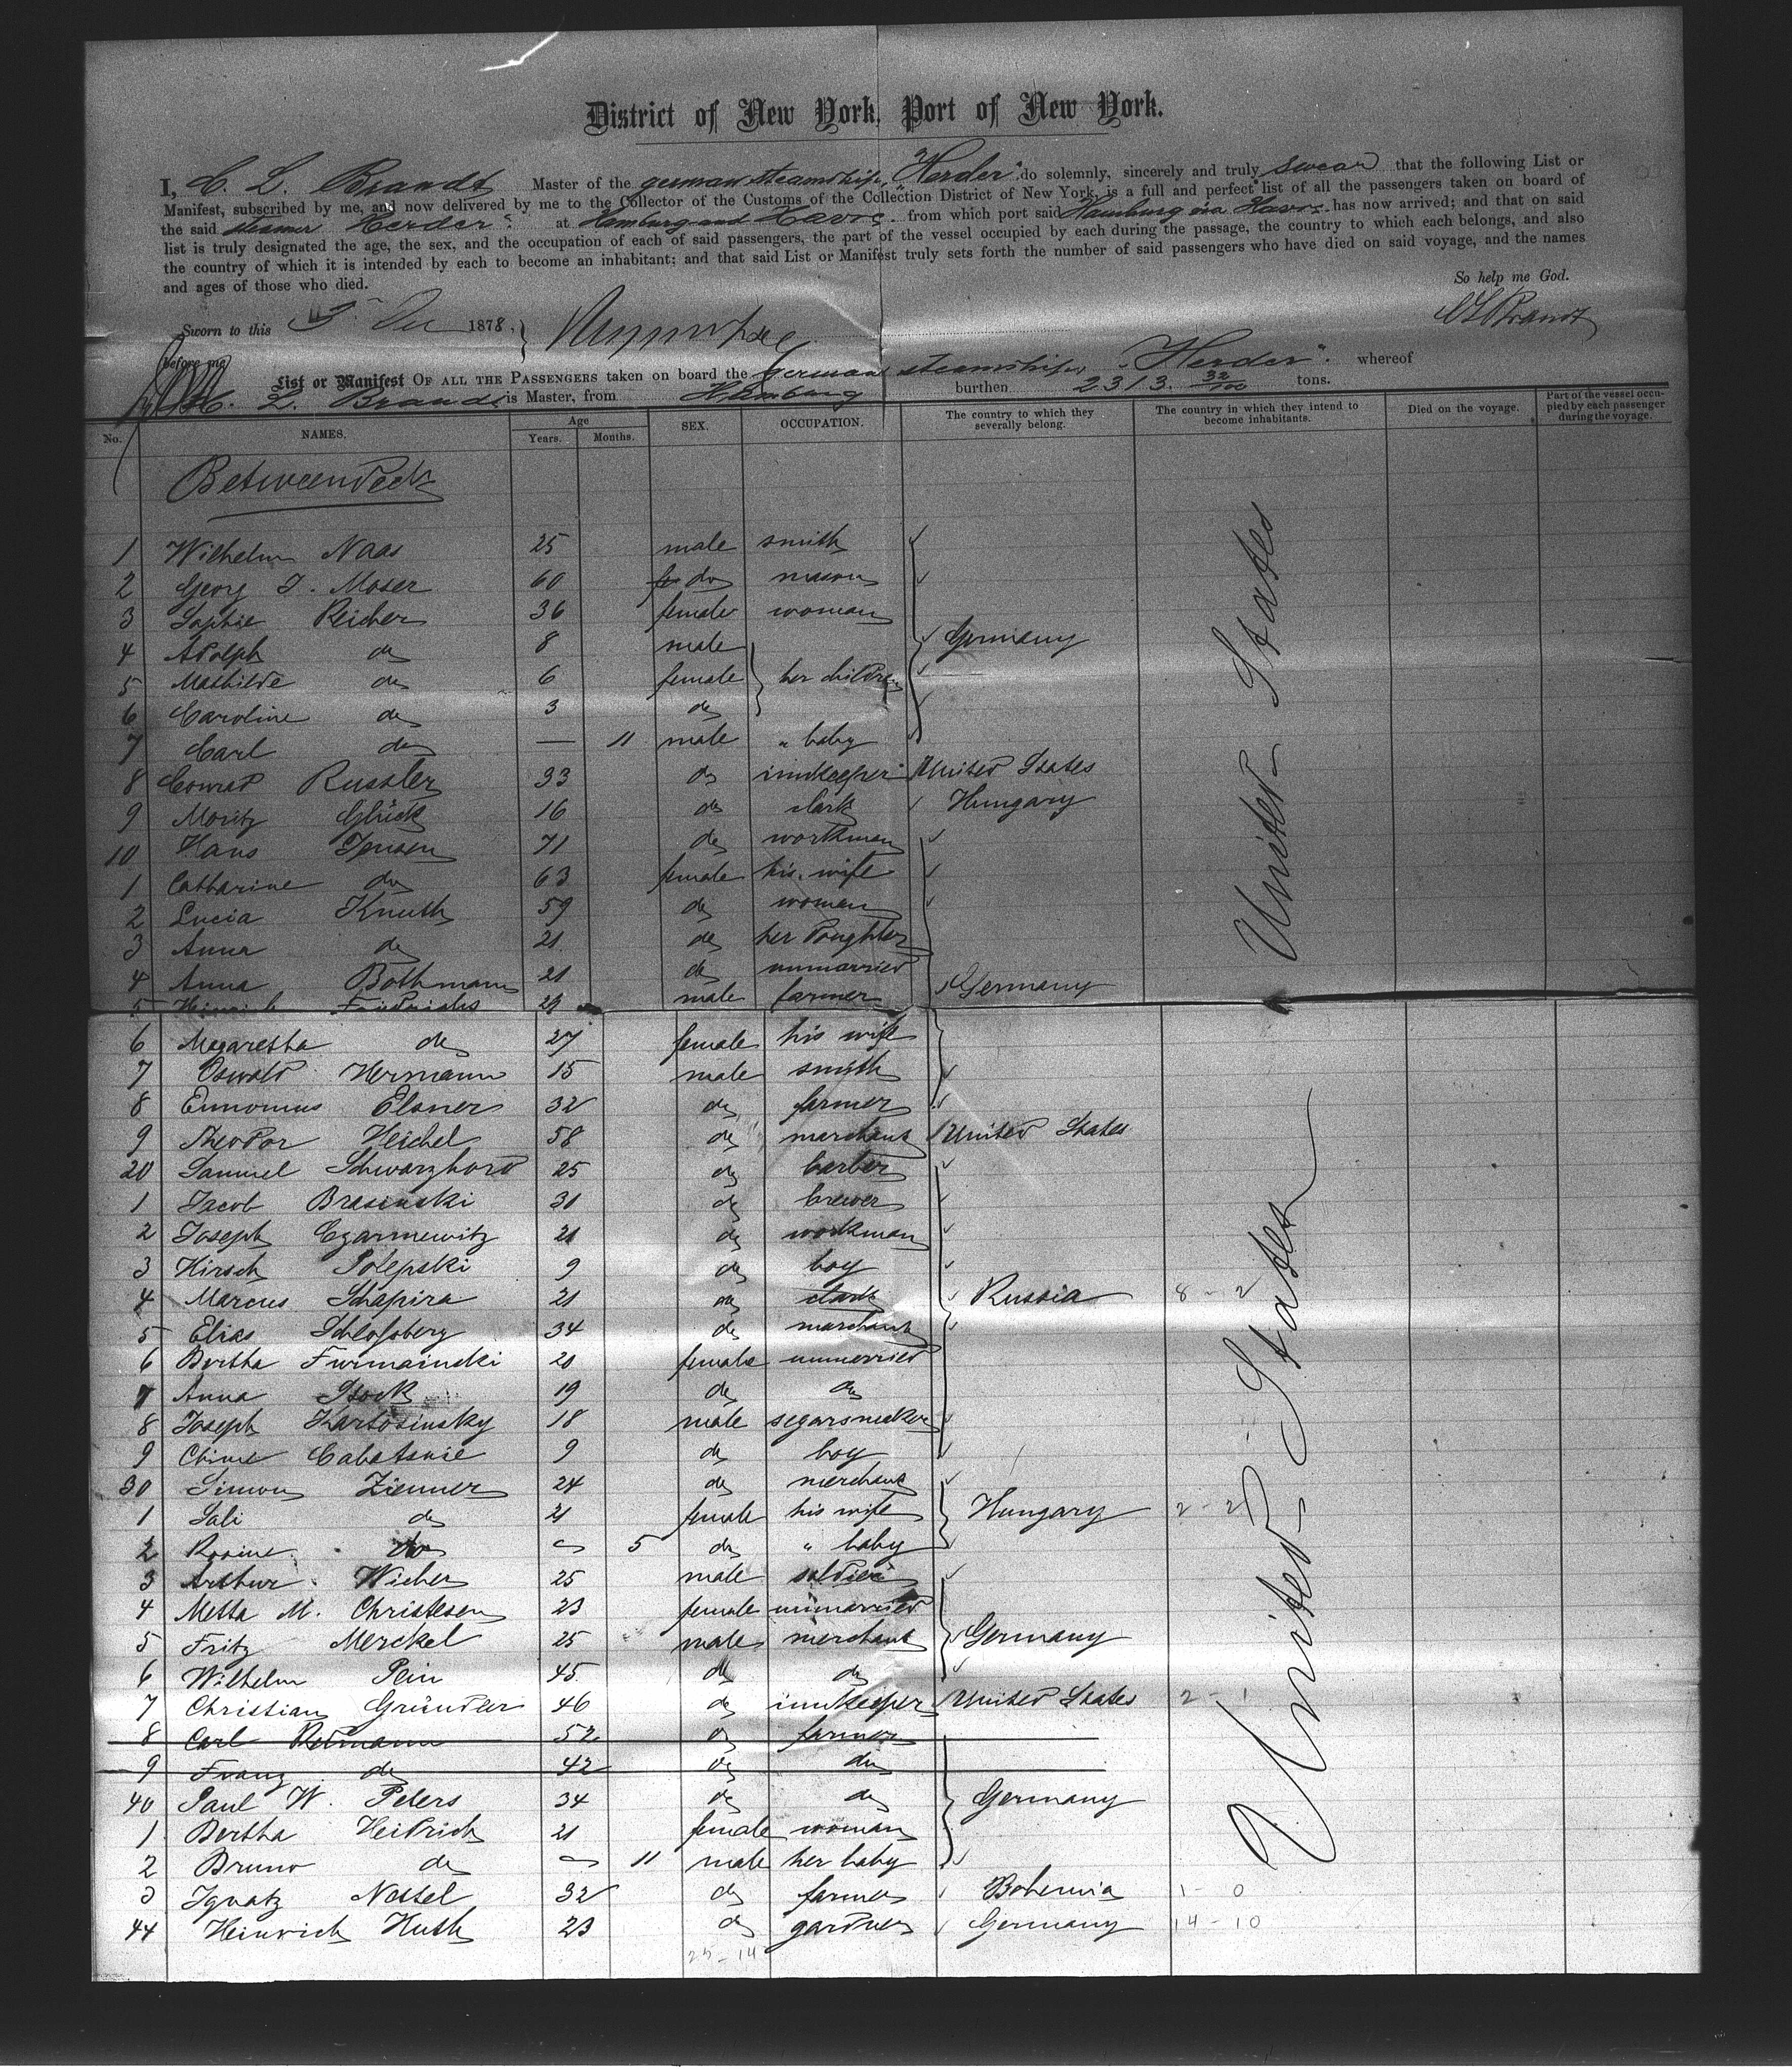 District of New York, Port of New York.
I, C. L. Brandt Master of the german steamship, "Herder" do solemnly, sincerely and truly swear that the following List or
Manifest, subscribed by me, and now delivered by me to the Collector of the Customs of the Collection District of New York, is a full and perfect list of all the passengers taken on board of
the said steamer Herder". at Hamburg and Havre. from which port said Hamburg via Havre. has now arrived; and that on said
list is truly designated the age, the sex, and the occupation of each of said passengers, the part of the vessel occupied by each during the passage, the country to which each belongs, and also
the country of which it is intended by each to become an inhabitant; and that said List or Manifest truly sets forth the number of said passengers who have died on said voyage, and the names
and ages of those who died.
So help me God.
Sworn to this 3 Dec 1878.
C L Brandt
before me
List or Manifest OF ALL THE PASSENGERS taken on board the German steamship, "Herder". whereof
C. L. Brandt is Master, from Hamburg burthen 2313. 32/100 tons.
No. NAMES. Age Years. Months. SEX. OCCUPATION. The country to which they severally belong. The country in which they intend to become inhabitants. Died on the voyage. Part of the vessel occupied by each passenger during the voyage.
Betweendeck
1 Wilhelm Naas 25 male smith
2 Georg J. Moser 60 do mason
3 Sophie Reicher 36 female woman
4 Adolph do 8 male Germany
5 Mathilde do 6 female her children
6 Caroline do 3 do
7 Carl do — 11 male " baby
8 Conrad Russler 33 do innkeeper United States
9 Moritz Glück 16 do clark Hungary
10 Hans Jensen 71 do workman
1 Catharine do 63 female his wife
2 Lucia Knuth 59 do woman
3 Anna do 21 do her doughter
4 Anna Bothmann 21 do unmarried Germany
5 Heinrich Friedrichs 29 male farmer
6 Magaretha do 27 female his wife
7 Oswald Hermann 15 male smith
8 Ennomus Elsner 32 do farmer
9 Theodor Heichel 58 do merchant United States
20 Samuel Schwarzbord 25 do barber
1 Jacob Brasinski 31 do brewer
2 Joseph Czarmewitz 21 do workman
3 Hirsch Polepski 9 do boy
4 Marcus Schapira 21 do clark Russia 8 - 2
5 Elias Schlossberg 34 do merchant
6 Bertha Furmainski 20 female unmerried
7 Anna 19 do do
8 Joseph Kartosinsky 18 male segarsmaker
9 Chime Cabatskie 9 do boy
30 Simon Ziemer 24 do merchant
1 Sali do 21 female his wife Hungary 2 - 2
2 Rosine do — 5 do " baby
3 Arthur Wicher 25 male soldier
4 Metta M. Christesen 23 female unmarried
5 Fritz Merckel 25 male merchant Germany
6 Wilhelm Pein 45 do do
7 Christian Gründler 46 do innkeeper United States 2 - 1
8 Carl Retmann 52 do farmer
9 Franz do 42 do do
40 Paul W. Peters 34 do do Germany
1 Bertha Heidrich 21 female woman
2 Bruno do — 11 male her baby
3 Ignatz Nestel 32 do farmer Bohemia 1 - 0
44 Heinrich Huth 23 do gardner Germany 14 - 10
25 - 14
United States
United States